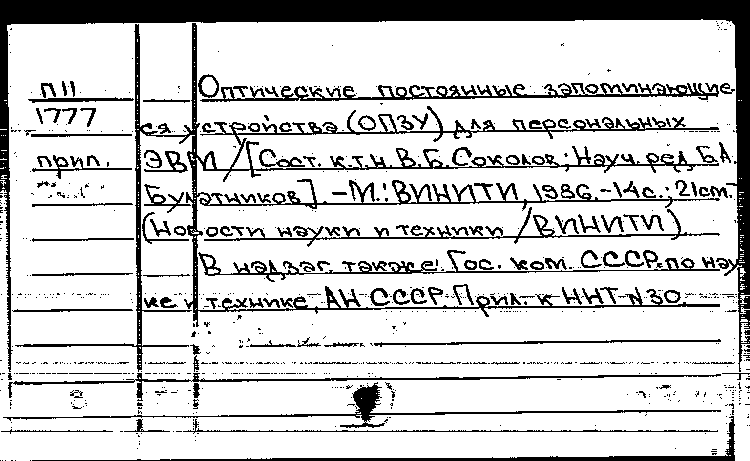 П11 Оптические постоянные запоминающие-
1777 ся устройства (ОПЗУ) для персональных
прил. ЭВМ / [Сост. к.т.н. В.Б. Соколов; Науч. ред. Б.А.
Булатников]. - М.: ВИНИТИ, 1986. - 14с.; 21см. -
(Новости науки и техники / ВИНИТИ)
В надзаг. также: Гос. ком. СССР по нау-
ке и технике, АН СССР. Прил. к ННТ N 30.
8